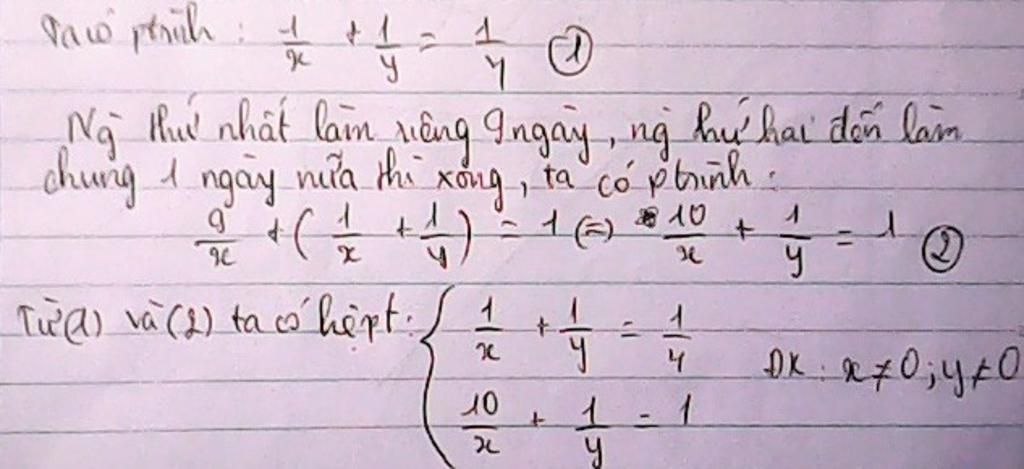 Ta có ptrình: 1/x + 1/y = 1/4 (1)
Ng thứ nhất làm riêng 9 ngày, ng thứ hai đến làm
chung 1 ngày nữa thì xong, ta có ptrình:
9/x + (1/x + 1/y) = 1 (=) 10/x + 1/y = 1 (2)
Từ (1) và (2) ta có hệ pt: { 1/x + 1/y = 1/4
ĐK: x ≠ 0; y ≠ 0
10/x + 1/y = 1